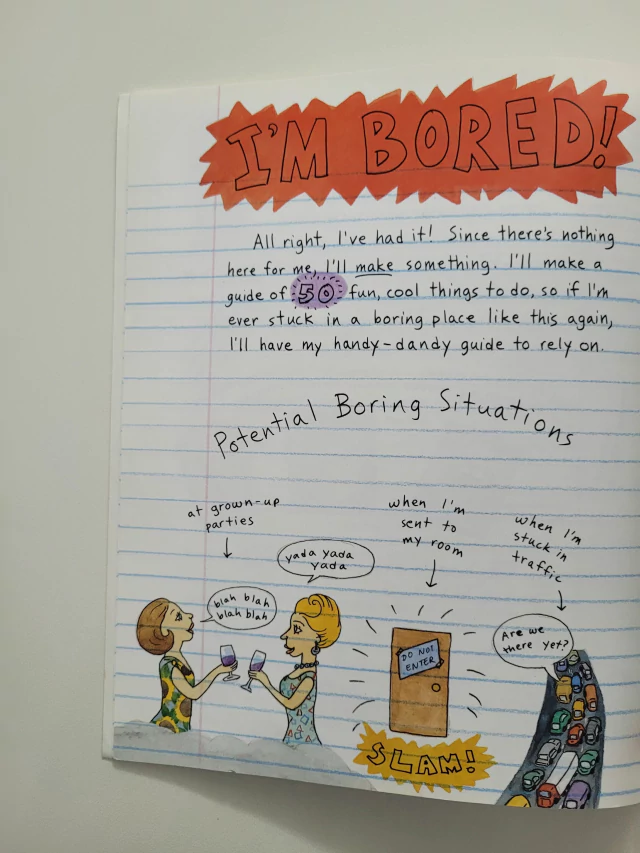 I'M BORED!
All right, I've had it! Since there's nothing
here for me, I'll make something. I'll make a
guide of 50 fun, cool things to do, so if I'm
ever stuck in a boring place like this again,
I'll have my handy-dandy guide to rely on.
Potential Boring Situations
at grown-up
parties
when I'm
sent to
my room
when I'm
stuck in
traffic
yada yada
yada
blah blah
blah blah
DO NOT
ENTER
Are we
there yet?
SLAM!